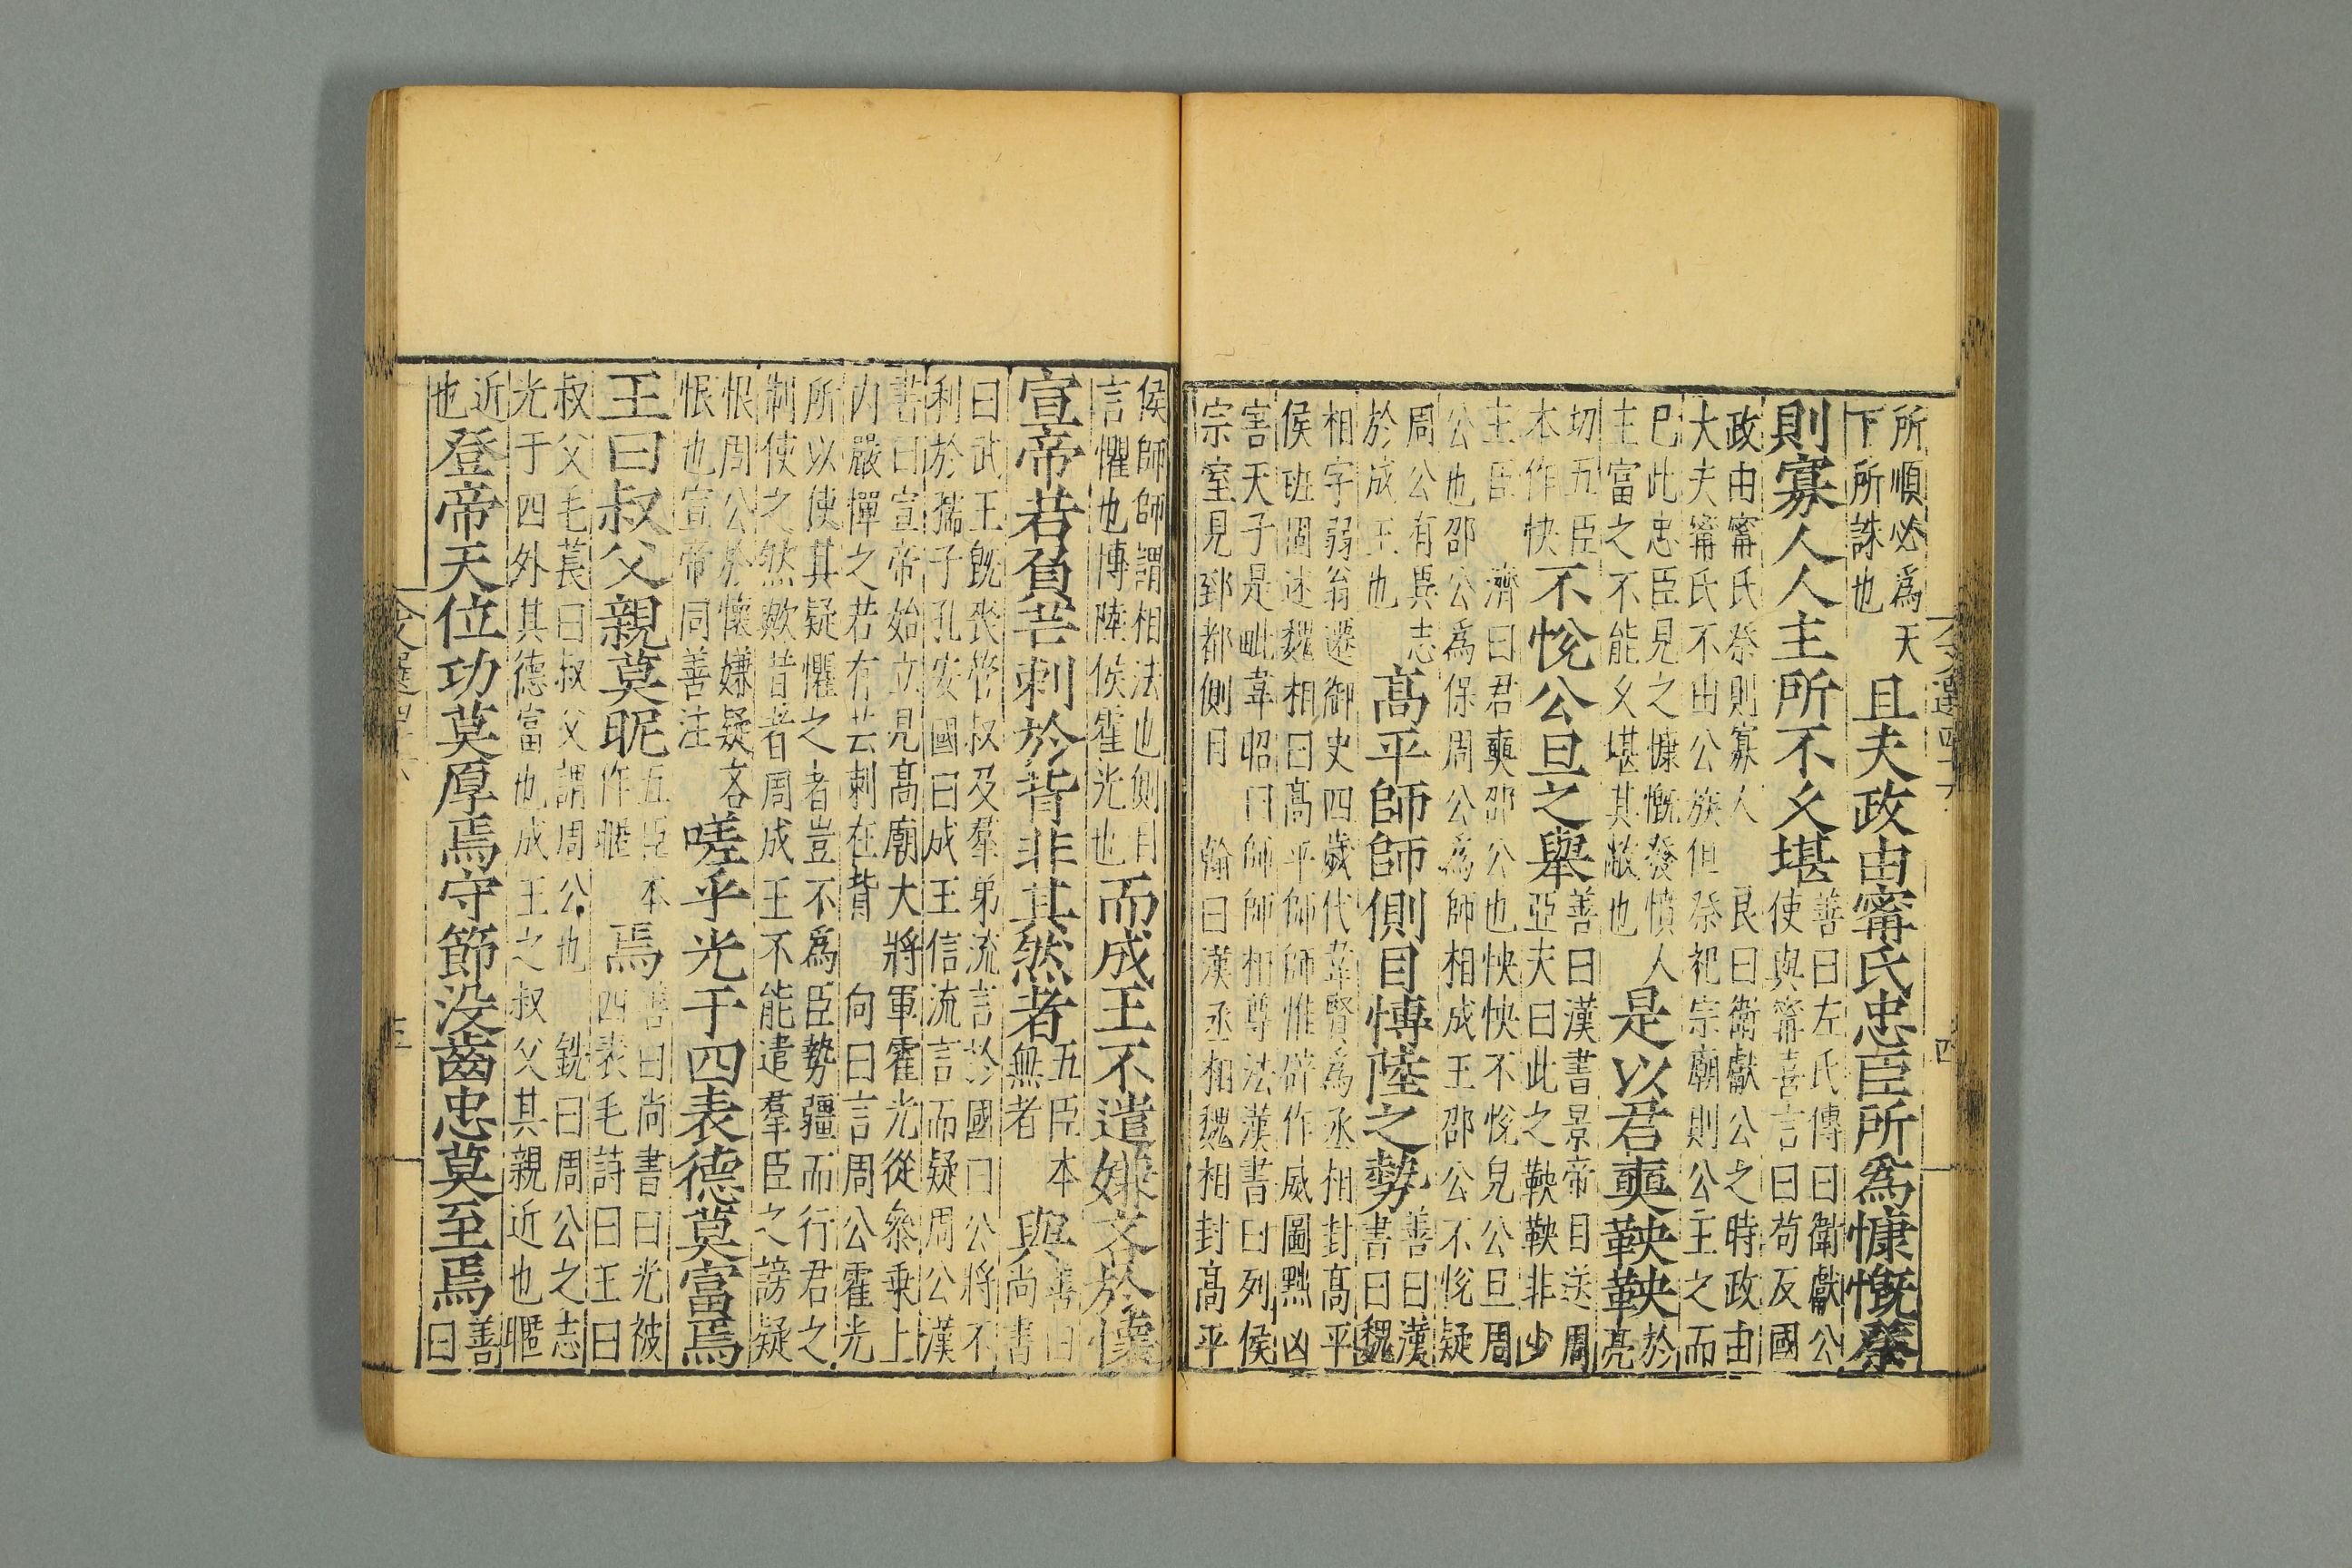 所順必為天
下所誅也
且夫政由甯氏忠臣所為慷慨祭
善曰左氏傳曰衛獻公
使與甯喜言曰苟反國
則寡人人主所不久堪
政由甯氏祭則寡人 良曰衛獻公之時政由
大夫甯氏不由公族但祭祀宗廟則公主之而
巳此忠臣見之慷慨發憤人
主富之不能久堪其敝也
是以君奭鞅鞅
於
亮
切五臣
本作怏
不悅公旦之舉
善曰漢書景帝目送周
亞夫曰此之鞅鞅非少
主臣 濟曰君奭邵公也怏怏不悅皃公旦周
公也邵公為保周公為師相成王邵公不悅疑
周公有異志
於成王也
高平師師側目博陸之勢
善曰漢
書曰魏
相字弱翁遷御史四歲代韋賢為丞相封高平
侯班固述魏相曰高平師師惟辟作威圖黜凶
害天子是毗韋昭曰師師相尊法漢書曰列侯
宗室見郅都側目 翰曰漢丞相魏相封高平
侯師師謂相法也側目
言懼也博陸侯霍光也
而成王不遣嫌吝於懷
宣帝若負芒刺於背非其然者
五臣本
無者
與
善曰
尚書
曰武王旣喪管叔及羣弟流言於國曰公將不
利於孺子孔安國曰成王信流言而疑周公漢
書曰宣帝始立見高廟大將軍霍光從參乗上
内嚴憚之若有芒刺在背 向曰言周公霍光
所以使其疑懼之者豈不為臣勢疆而行君之
制使之然歟昔者周成王不能遣羣臣之謗疑
恨周公於懷嫌疑吝
恨也宣帝同善注
嗟乎光于四表德莫富焉
王曰叔父親莫昵
五臣本
作暱
焉
善曰尚書曰光被
四表毛詩曰王曰
叔父毛萇曰叔父謂周公也 銑曰周公之志
光于四外其德富也成王之叔父其親近也暱
近
也
登帝天位功莫厚焉守節没齒忠莫至焉
善
曰
文選四十六
四